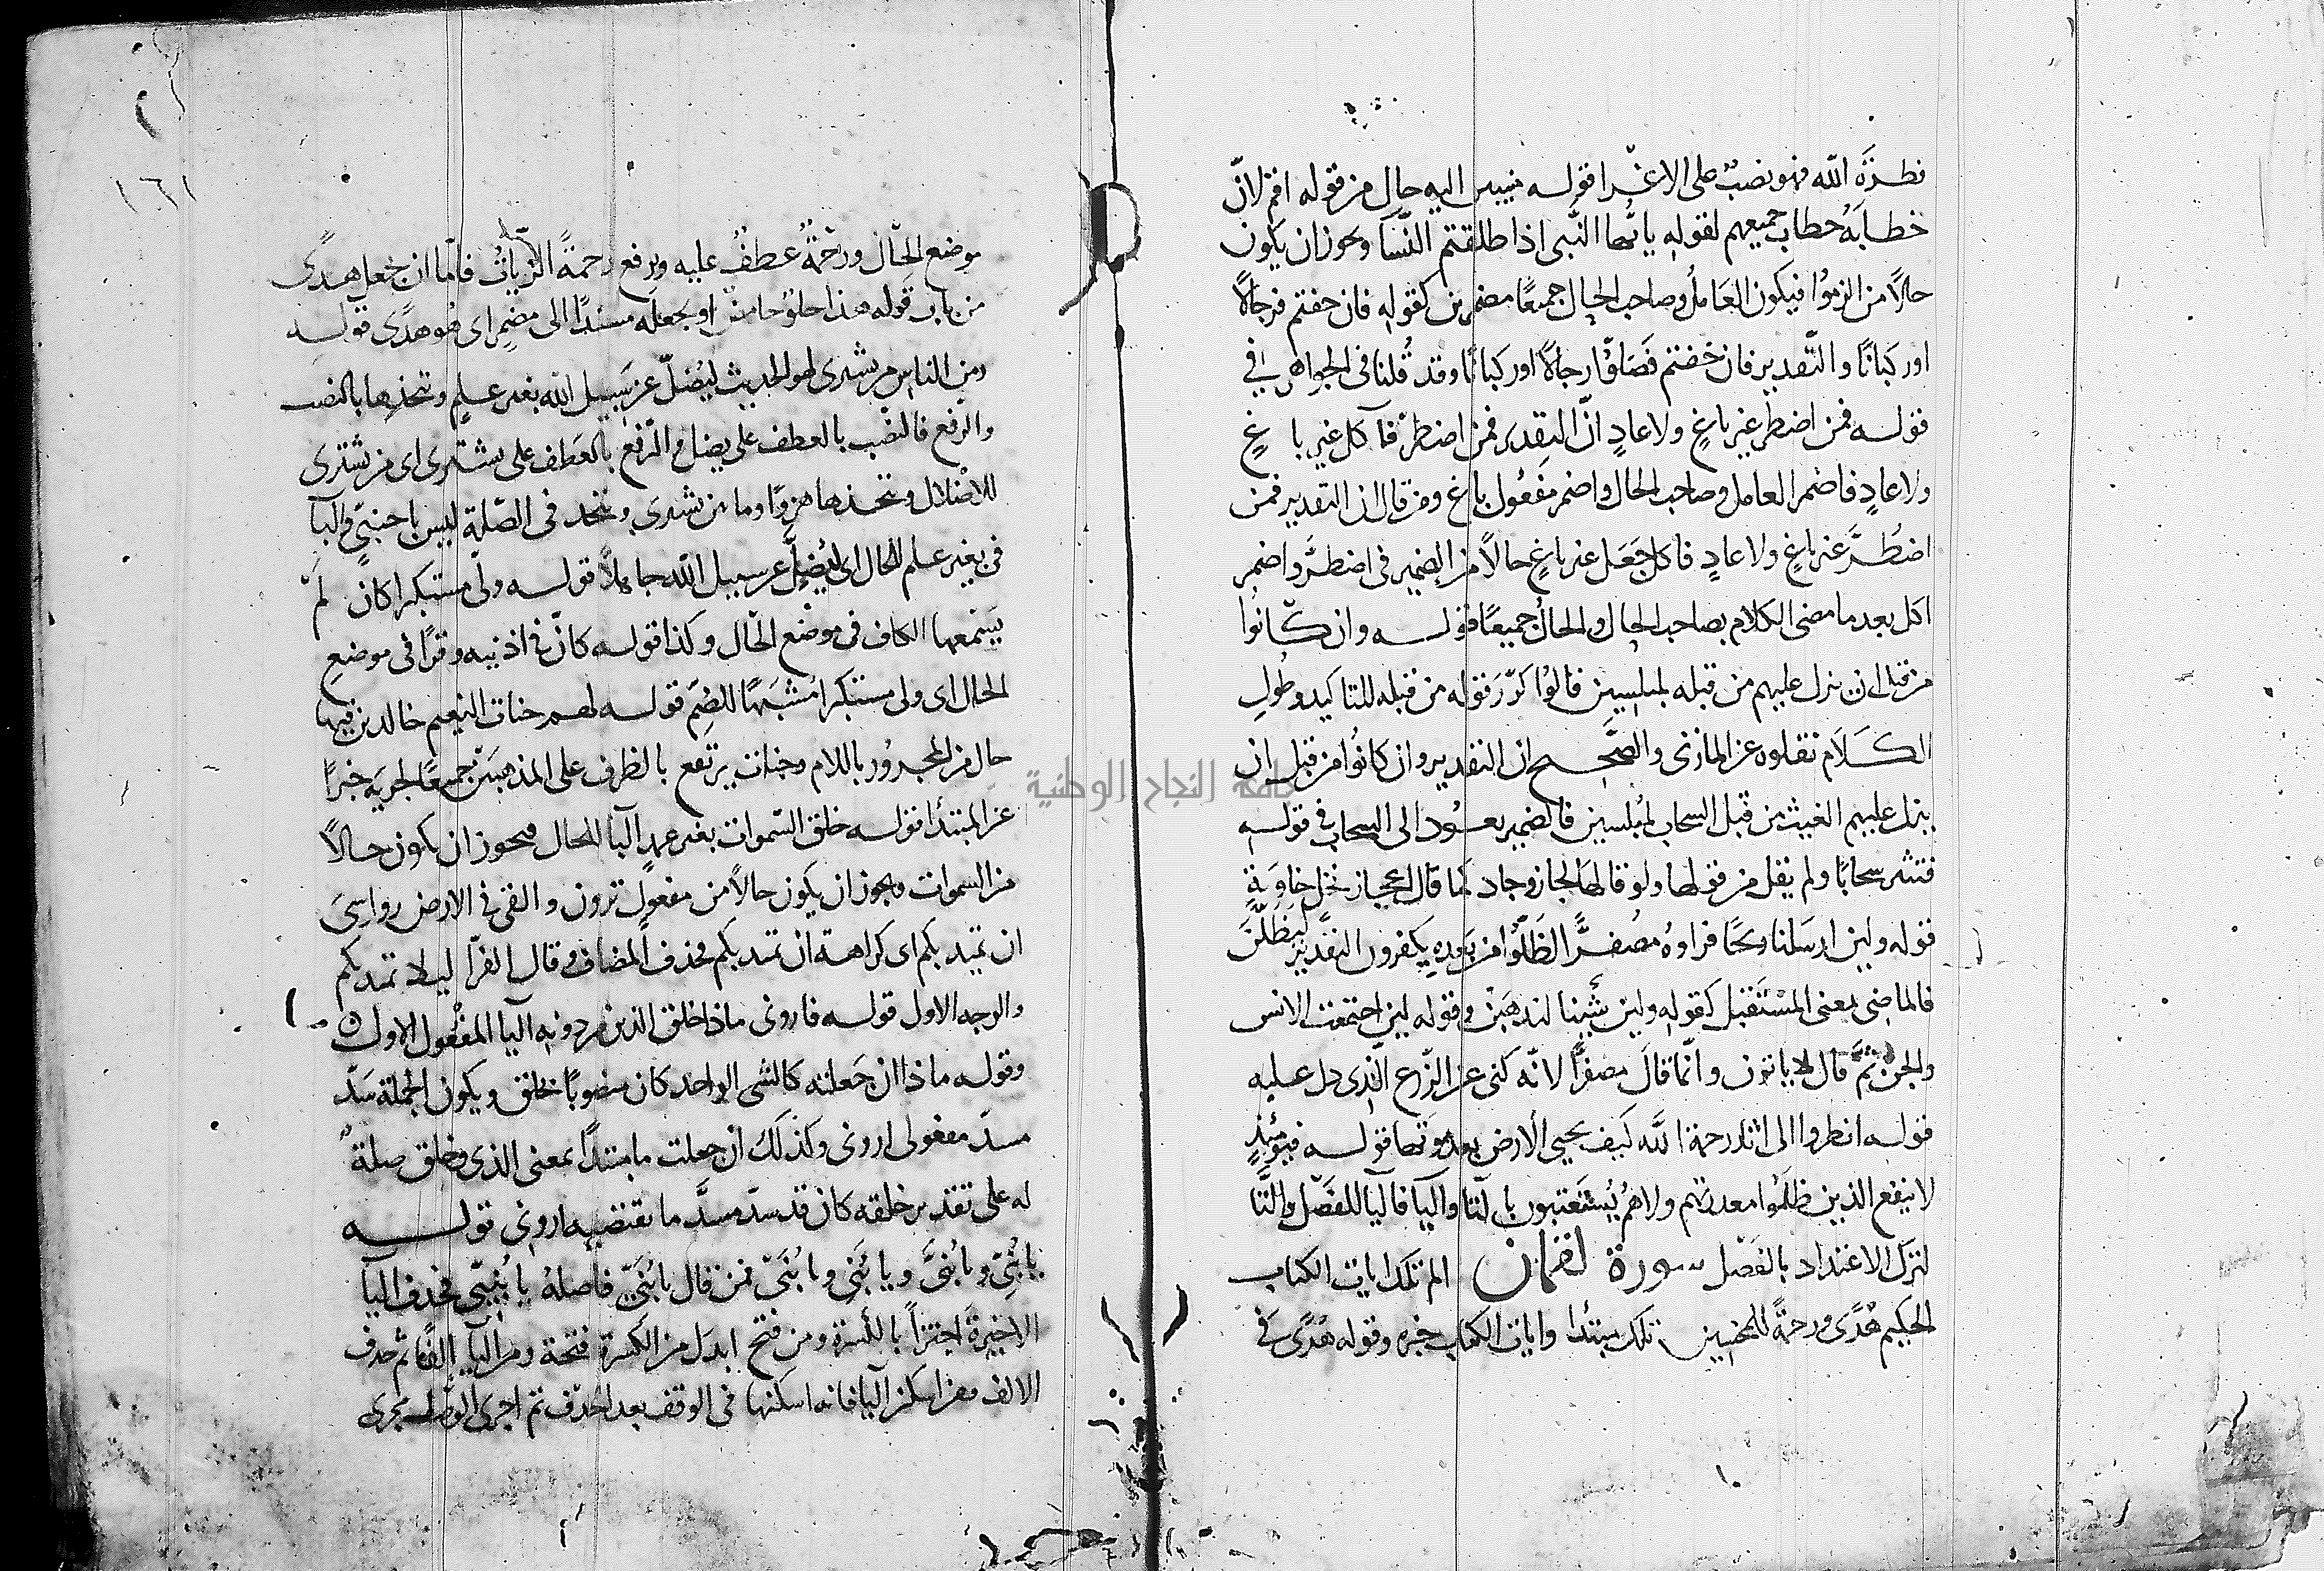 نطرَةَ الله فهو نصبٌ على الاغْرا قوله منيبين اليه حال من قوله اقم لانّ
خطابَهُ خطاب جميعهم لقوله يا يُّها النَّبى اذا طلقتم النّسآ ويحوز ان يكون
حالاً من الزموُا فيكون العَاملُ وصاحب الحال جميعًا مضمرين كقوله فان خفتم فرجالاً
اور كبانًا والتَّقدير فان خفتم فَصَلوّا رجالاً اور كبانًا وقد قُلنا فى الجواهر فى
قوله فمن اضطر غير باغٍ ولا عادٍ انّ التقدير فمن اضطر فآ كل غير باغٍ
ولا عادٍ فاضمر العامل وصاحب الحال واضمر مفَعُول باغ ومن قال ان التقدير فمن
اضطُرَّ غير باغٍ ولا عادٍ فاكل جَعَل غير باغٍ حالاً من الضمير فى اضطرَّ واضمر
اكل بعد ما مضى الكلام بصاحب الحال والحال جميعًا قوله وان كانُوا
من قبل ان ينزل عليهم من قبله لمبلسين قالوُا كرّرَ قوله من قبله للتاكيد وطُولِ
الكَلَام نقلوه عن المازنى والصَّحيح ان التقدير وان كانُوا من قبل ان
ينزل عليهم الغيث من قبل السحاب لمُبلسين فالضمير يعوُد الى السحاب فى قوله
فتثير سحابًا ولم يقل من قبلها ولو قالها لجاز وجاد كما قال اعجاز نخل خاوَيةٍ
قوله ولين ارسَلنا ريحًا فراوهُ مصُفرًّا لظَلّوُا من بعدهِ يكفرون التقدير ليَظَلُّنّ
فالماضى بمعنى المسْتَقبل كقوله ولين شئنا لنذهَبنّ وقوله لين اجتمعت الانس
والجن ثمَّ قال لا ياتون وانّما قالَ مصفرًّا لانّه كنى عن الزّرع الّذى دل عليه
قوله انظروا الى اثار رحمة اللَّه كيف يحيى الأرض بعد موتها قوله فيومئذٍ
لا ينفع الذين ظلَموُا معذرتهم ولا همُ يُستَعتبون بالتّا واليآ فاليآ للفَصْل والتَّا
لترَك الاعتداد بالفَصْل سورة لقمان الم تلك ايات الكتاب
الحكيم هُدًى ورحمةً للمحسنين تلك مبتدأ وايات الكتاب خبره وقوله هُدًى فى
١٦١
موضع الحَال ورحْمَةً عطفٌ عليه ويرفع رحمةً الزيّاتُ فامّا ان جَعل هدًى
من باب قَوله هذا حلوٌ حامضٌ او يجعله مسندًا الى مضمرٍ اى هُو هدًى قوله
ومن الناس من يشترى لهو الحديث ليُضلّ عن سَبيل الله بغير علمٍ وتتخذها بالنصب
والرفع فالنصْب بالعطف على يضل والرّفع بالعَطف على يشترى اى من يشترى
للاضلال ويتخذها هزوًا وما بين يشترى ويتخذ فى الصّلة ليس باجنبىٍّ والبآ
فى بغير علم للحال اى ليُضلَّ عن سبيل الله جاهلاً قوله ولّى مستبكرا كان لمْ
يَسْمعها الكاف فى موضع الحّال وكذا قوله كانّ فى اذنيه وقرًا فى موضعِ
الحال اى ولى مستبكرا مُشبَهًا للصُمّ قوله لهم جنات النعيم خالدين فيها
حال من المجروُر باللام وجنات يرتفع بالظرف على المذهبَين جميعًا لجريه خبرًا
عن المبتدأ قوله خلق السّموات بغير عمدٍ البآ للحال فيحوز ان يكون حالاً
من السموات ويجوز ان يكون حالاً من مفعول ترون والقى فى الارض رواسِىَ
ان تميد بكم اى كراهة ان تميد بكم فحذف المضاف وقال الفرّا ليلا تميد بكم
والوجه الاول قوله فارونى ماذا خلق الذين من دونه اليآ المفْعُول الاول
وقوله ماذا ان جَعلته كالشى الواحد كان منصوبًا بخلق ويكون الجملة سَدّ
مسدّ مفعولى ارونى وكذلك ان جعلت ما مبتدًا بمعنى الذى وخلق صلةٌ
له على تقدير خلقه كان قد سدّ مسدَّ ما يقتضيه ارونى قوله
يا بُنىّ ويا بُنىَّ ويا بُنَىِ ويا بُنَىْ فمن قال يا بُنَىّ فاصلهُ يا بُنيِّى فحذف اليآ
الاخيرةَ اجتزاً بالكسرة ومن فتح ابدل من الكسرة فتحة ومن اليآ الفًا ثم حذف
الالف ومن اسكن اليآ فانه اسكنها فى الوقف بعد الحذف ثم اجرى الوصل مجرى
جامعة النجاح الوطنية